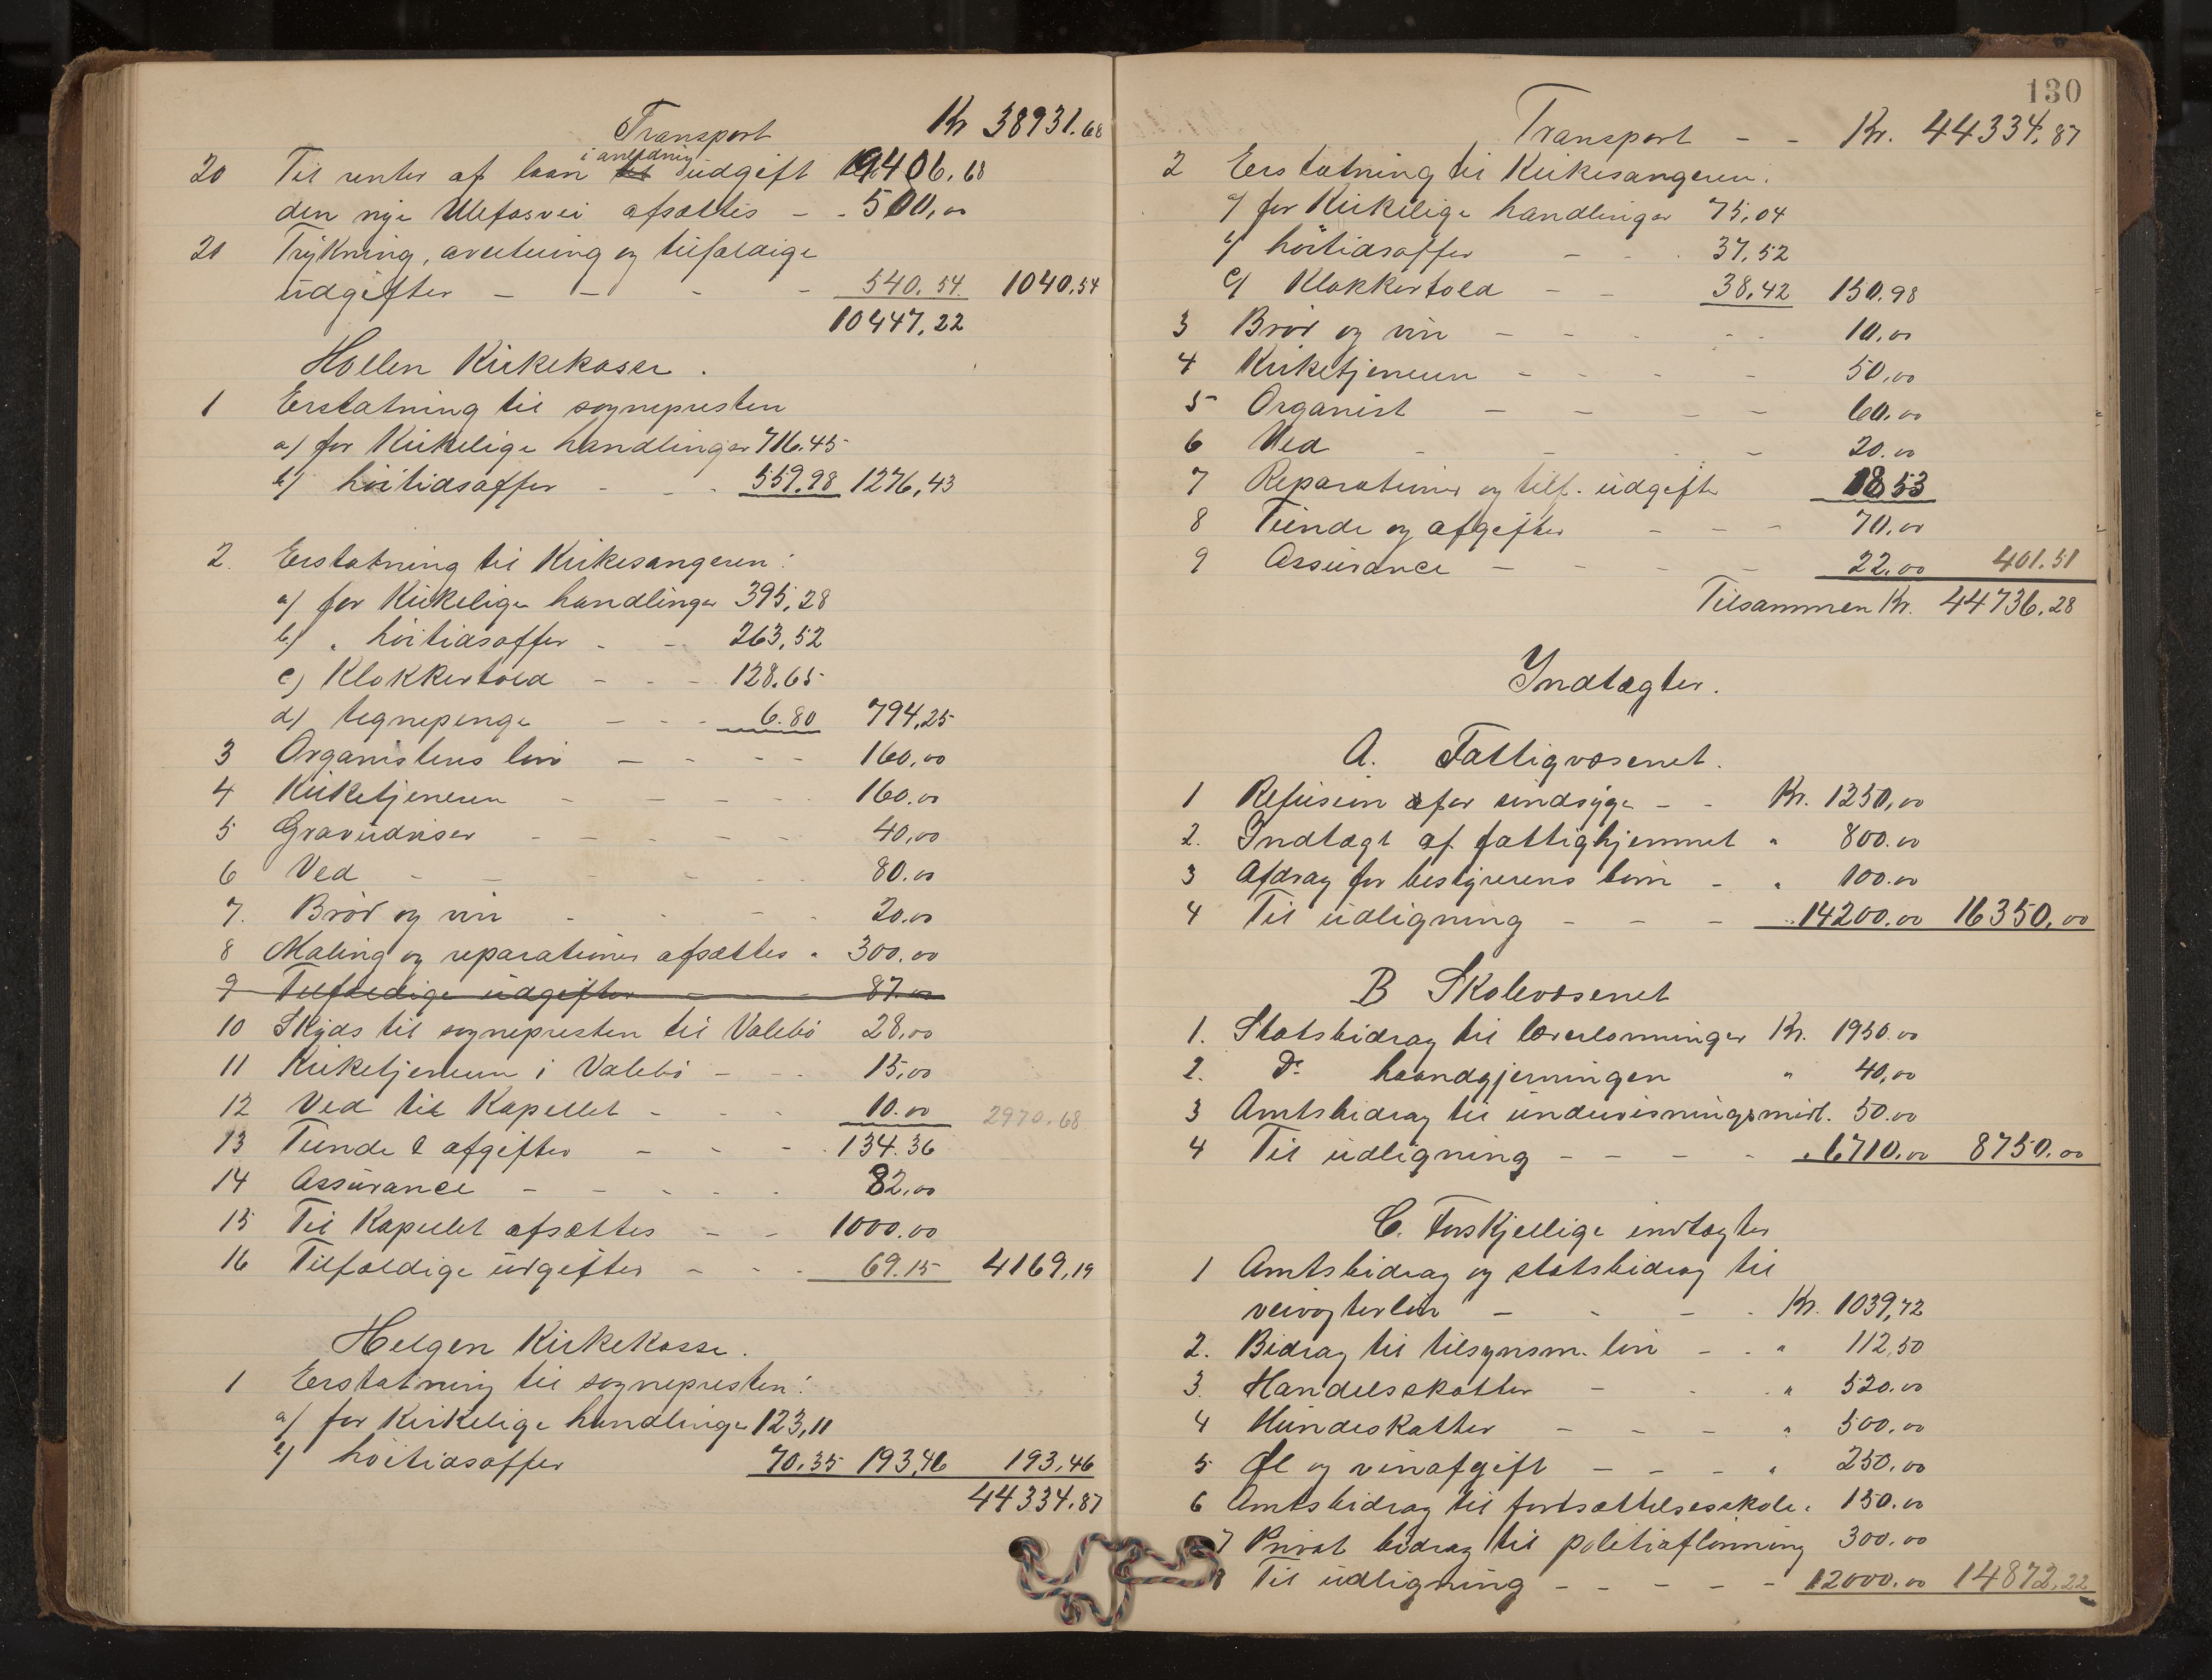 Transport Kr 38931.68
20 Til renter af laan i anledning udgift 9406.68
den nye Ulefosvei afsættes - - 500,00
21 Trykning, avertering og tilfældige
udgifter - - - - 540.54 1040.54
10447,22
Hollen Kirkekasse.
1 Erstatning til sognepresten
a) for Kirkelige handlinger 716.45
b) høitidsoffer - - - 559.98 1276,43
2. Erstatning til Kirkesangeren:
a) for Kirkelige handlinger 395,28
b) " høitidsoffer - - 263,52
c) Klokkertold - - - 128.65
d) tegnepenge - - - 6.80 794,25
3 Organistens løn - - - - 160,00
4 Kirketjeneren - - - - 160.00
5 Gravudviser - - - - - 40,00
6 Ved - - - - - - 80.00
7. Brød og vin - - - - 20.00
8 Maling og reparationer afsættes " 300.00
9 Tilfældige udgifter - - - 87.00
10 Skyds til sognepresten til Valebø 28,00
11 Kirketjeneren i Valebø - - 15,00
12 Ved til Kapellet - - - 10.00 2970.68
13 Tiende & afgifter - - - 134.36
14 Assurance - - - - - 82,00
15 Til Kapellet afsættes - - 1000.00
16 Tilfældige udgifter - - - 69.15 4169,19
Helgen Kirkekasse.
1 Erstatning til sognepresten:
a) for Kirkelige handlinger 123,11
b) høitidsoffer 70.35 193,46 193,46
44334.87
130
Transport - - Kr. 44334,87
2 Erstatning til Kirkesangeren:
a) for Kirkelige handlinger 75,04
b) høitidsoffer - - - 37,52
c) Klokkertold - - 38,42 150,98
3 Brød og vin - - - - - 10,00
4 Kirketjeneren - - - - 50,00
5 Organist - - - - 60.00
6 Ved - - - - 20.00
7 Reparationer og tilf. udgifter 18,53
8 Tiende og afgifter - - - 70,00
9 Assurance - - - - 22.00 401.51
Tilsammen Kr. 44736.28
Indtægter.
A. Fattigvæsenet.
1 Refusion for sindsyge - - Kr. 1250,00
2. Indtægt af fattighjemmet " 800.00
3 Afdrag for bestyrerens børn - " 100.00
4 Til udligning - - - " 14200.00 16350,00
B Skolevæsenet
1. Statsbidrag til lærerlønninger Kr. 1950.00
2. Do haandgjerningen " 40,00
3 Amtsbidrag til undervisningsmidl. 50.00
4 Til udligning - - - - " 6710.00 8750.00
C. Forskjellige indtægter
1 Amtsbidrag og statsbidrag til
veivogterløn - - - - Kr. 1039,72
2. Bidrag til tilsynsm. løn - - " 112,50
3. Handelsskatter - - " 520.00
4 Hundeskatter - - - " 500.00
5 Øl og vinafgift - - - " 250.00
6 Amtsbidrag til fortsættelsesskole " 150.00
7 Privat bidrag til politiaflønning 300.00
8 Til udligning - - - - - 12000.00 14872,22